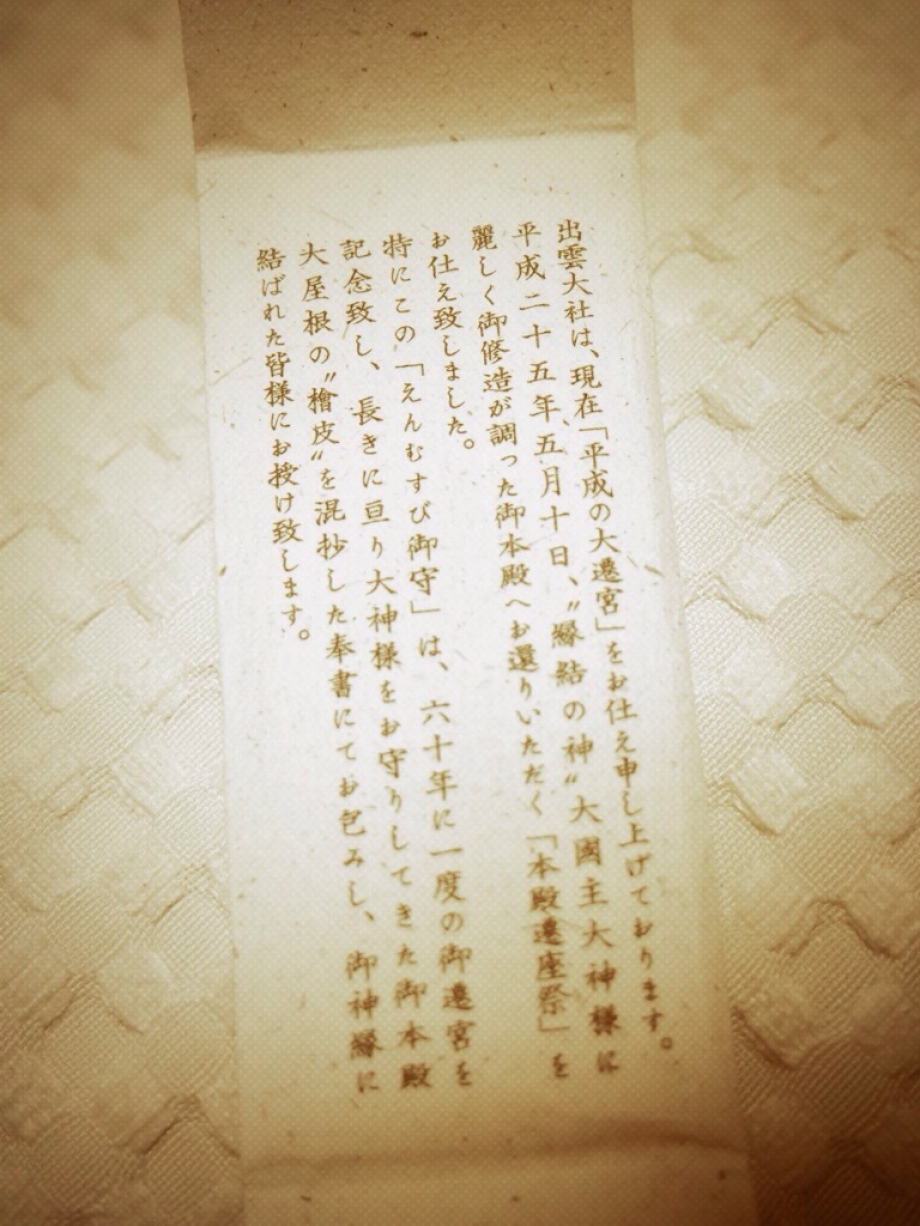 出雲大社は、現在「平成の大遷宮」をお仕え申し上げております。
平成二十五年、五月十日、〝縁結の神〟大國主大神様に
麗しく御修造が調った御本殿へお還りいただく「本殿遷座祭」を
お仕え致しました。
特にこの「えんむすび御守」は、六十年に一度の御遷宮を
記念致し、長きに亘り大神様をお守りしてきた御本殿
大屋根の〝檜皮〟を混抄した奉書にてお包みし、御神縁に
結ばれた皆様にお授け致します。